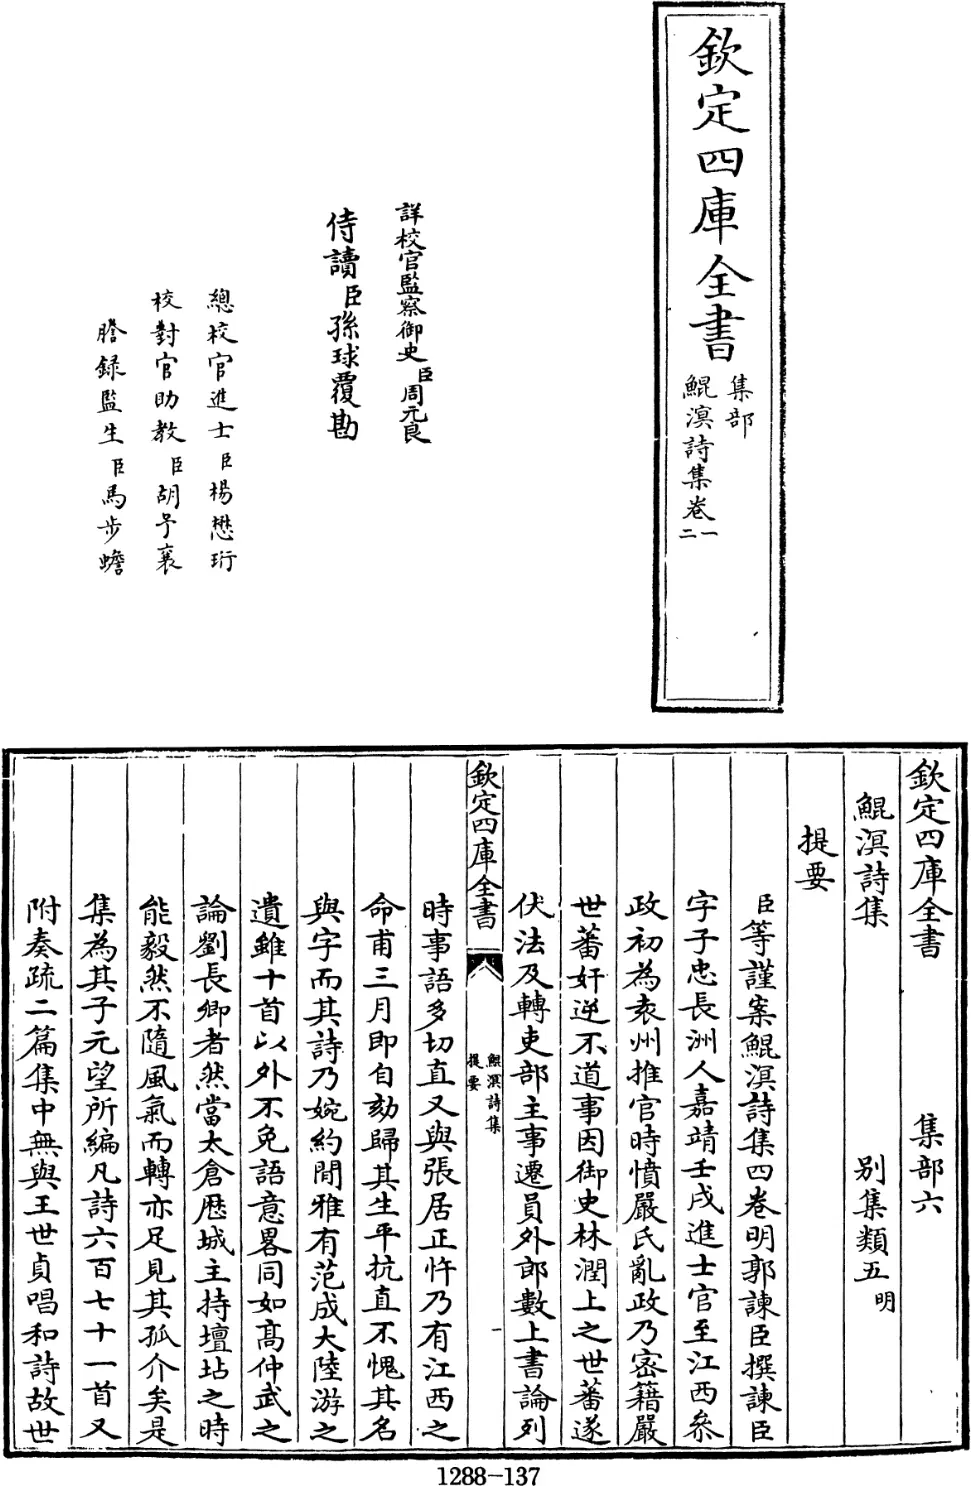 欽定四庫全書
集部
鯤溟詩集卷一
二
詳校官監察御史臣周元良
侍讀臣孫球覆勘
總校官進士臣楊懋珩
校對官助教臣胡予襄
謄錄監生臣馬步蟾
欽定四庫全書　集部六
鯤溟詩集　別集類五明
提要
臣等謹案鯤溟詩集四卷明郭諫臣撰諫臣
字子忠長洲人嘉靖壬戌進士官至江西叅
政初為袁州推官時憤嚴氏亂政乃密籍嚴
世蕃奸逆不道事因御史林潤上之世蕃遂
伏法及轉吏部主事遷員外郎數上書論列
欽定四庫全書
鯤溟詩集
提要
一
時事語多切直又與張居正忤乃有江西之
命甫三月即自劾歸其生平抗直不愧其名
與字而其詩乃婉約閒雅有范成大陸游之
遺雖十首以外不免語意畧同如高仲武之
論劉長卿者然當太倉歷城主持壇坫之時
能毅然不隨風氣而轉亦足見其孤介矣是
集為其子元望所編凡詩六百七十一首又
附奏疏二篇集中無與王世貞唱和詩故世
1288-137